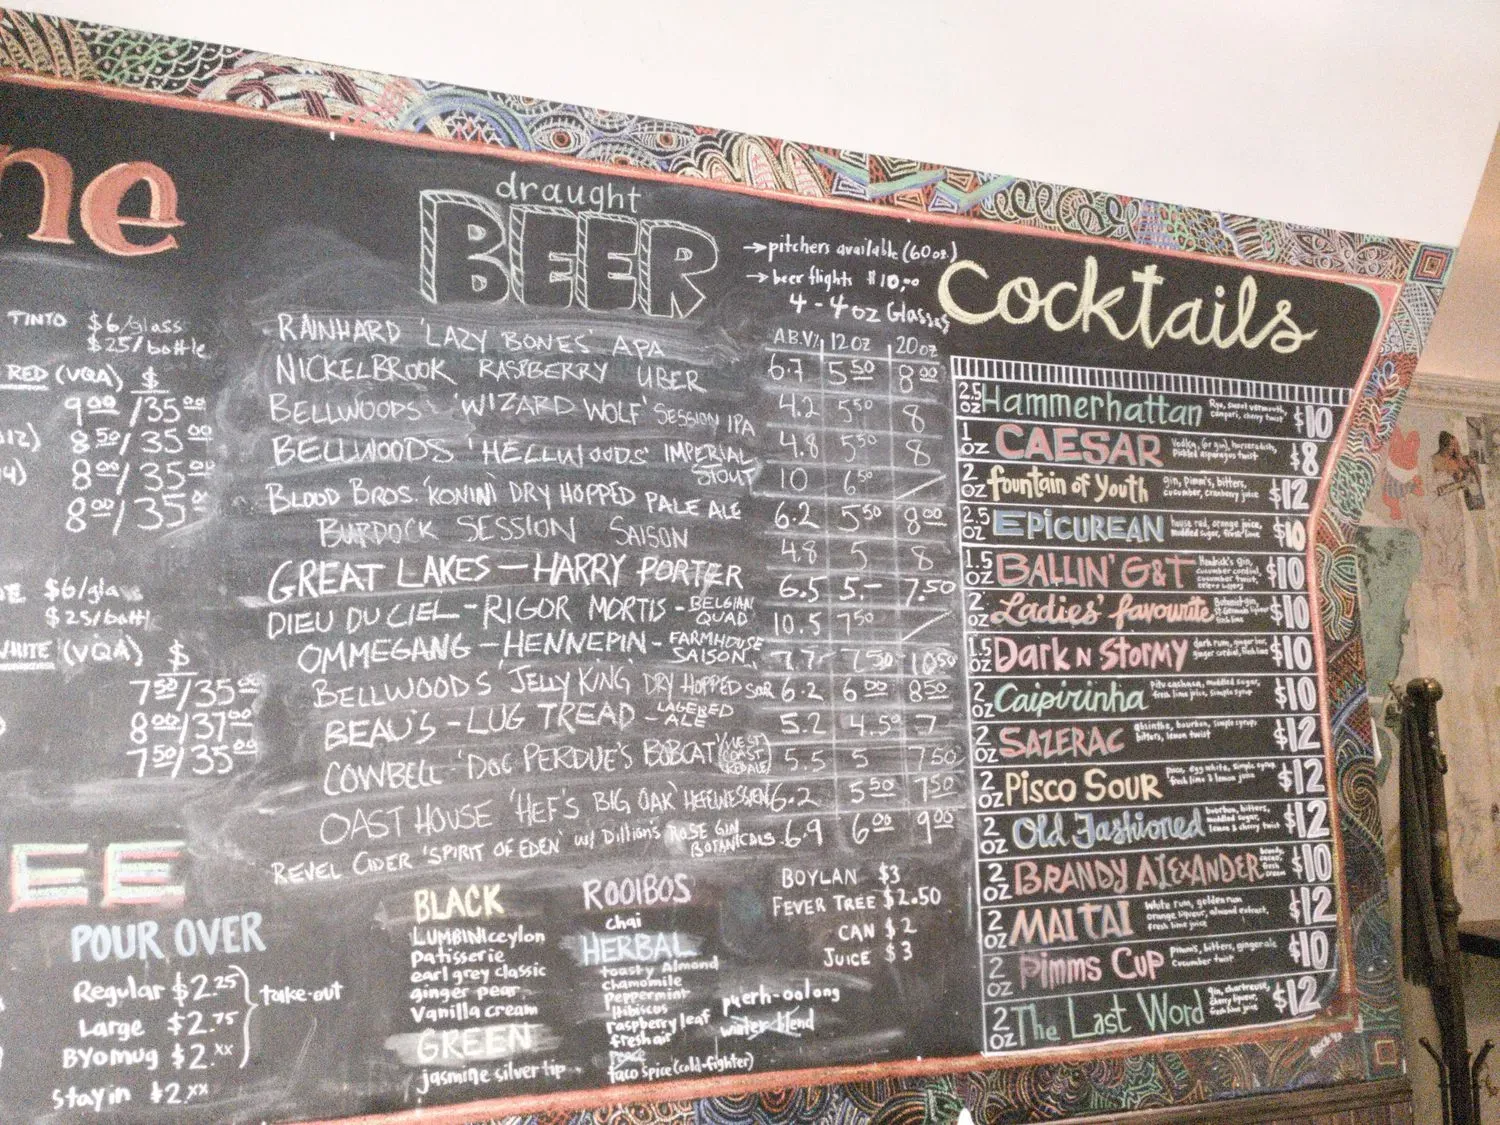 ne
TINTO $6/glass
$25/bottle
RED (VQA) $
9⁰⁰/35⁰⁰
8⁵⁰/35⁰⁰
8⁰⁰/35⁰⁰
8⁰⁰/35⁰⁰
$6/gla s
$25/bottl
WHITE (VQA) $
7⁵⁰/35⁰⁰
8⁰⁰/37⁰⁰
7⁵⁰/35⁰⁰
EE
POUR OVER
Regular $2.²⁵
Large $2.⁷⁵
BYOmug $2.ˣˣ
take-out
Stay in $2.ˣˣ
draught
BEER
→pitchers available (60oz.)
→beer flights $10.⁰⁰
4-4oz Glasses
A.B.V% 12oz 20oz
RAINHARD 'LAZY BONES' APA 6.7 5⁵⁰ 8⁰⁰
NICKELBROOK RASPBERRY UBER 4.2 5⁵⁰ 8
BELLWOODS 'WIZARD WOLF' SESSION IPA 4.8 5⁵⁰ 8
BELLWOODS 'HELLWOODS' IMPERIAL STOUT 10 6⁵⁰ /
BLOOD BROS. 'KONINI' DRY HOPPED PALE ALE 6.2 5⁵⁰ 8⁰⁰
BURDOCK SESSION SAISON 4.8 5 8
GREAT LAKES — HARRY PORTER 6.5 5.- 7.50
DIEU DU CIEL - RIGOR MORTIS - BELGIAN QUAD 10.5 7⁵⁰ /
OMMEGANG - HENNEPIN - FARMHOUSE SAISON 7.7 7⁵⁰ 10⁵⁰
BELLWOODS 'JELLY KING' DRY HOPPED SOR 6.2 6⁰⁰ 8⁵⁰
BEAU'S - LUG TREAD - LAGERED ALE 5.2 4.5⁰ 7
COWBELL - 'DOC PERDUE'S BOBCAT' (WEST COAST RED ALE) 5.5 5 7⁵⁰
OAST HOUSE 'HEF'S BIG OAK' 6.2 5⁵⁰ 7⁵⁰
REVEL CIDER 'SPIRIT OF EDEN' w/ Dillion's ROSE GIN BOTANICALS 6.9 6⁰⁰ 9⁰⁰
BLACK
LUMBINI ceylon
patisserie
earl grey classic
ginger pear
Vanilla cream
GREEN
jasmine silver tip
ROOIBOS
chai
HERBAL
toasty Almond
chamomile
peppermint
hibiscus
raspberry leaf
fresh air
peace
taco spice (cold-fighter)
puerh-oolong
winter blend
BOYLAN $3
FEVER TREE $2.50
CAN $2
JUICE $3
Cocktails
2.5 oz Hammerhattan Rye, sweet vermouth, campari, cherry twist $10
1 oz CAESAR Vodka, (or gin), horseradish, Pickled asparagus twist $8
2 oz fountain of Youth gin, pimm's, bitters, cucumber, cranberry juice $12
2.5 oz EPICUREAN house red, orange juice, muddled sugar, fresh lime $10
1.5 oz BALLIN' G&T Hendrick's gin, cucumber cordial, cucumber twist, $10
2 oz Ladies' favourite $10
1.5 oz Dark N Stormy dark rum, ginger beer, ginger cordial, fresh lime $10
2 oz Caipirinha Pitu cachaca, muddled sugar, fresh lime juice, simple syrup $10
2 oz SAZERAC absinthe, bourbon, simple syrup, bitters, lemon twist $12
2 oz Pisco Sour pisco, egg white, simple syrup fresh lime & lemon juice $12
2 oz Old Fashioned bourbon, bitters, muddled sugar, lemon & cherry twist $12
2 oz BRANDY ALEXANDER brandy, cacao, fresh cream $10
2 oz MAI TAI White rum, golden rum orange liqueur, almond extract, fresh lime juice $12
2 oz Pimms Cup Pimm's, bitters, ginger ale Cucumber twist $10
2 oz The Last Word gin, chartreuse, cherry liqueur, fresh lime juice $12